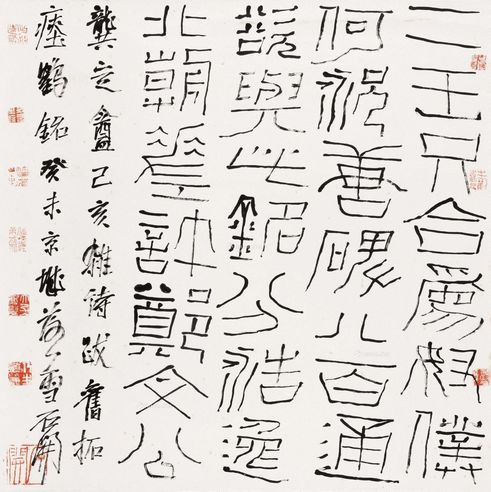 二王只合為奴僕
何況唐碑八百通
欲與此銘分浩逸
北朝差許鄭文公
龔定盦己亥雜詩跋舊拓
瘞鶴銘癸未京城落雪石開